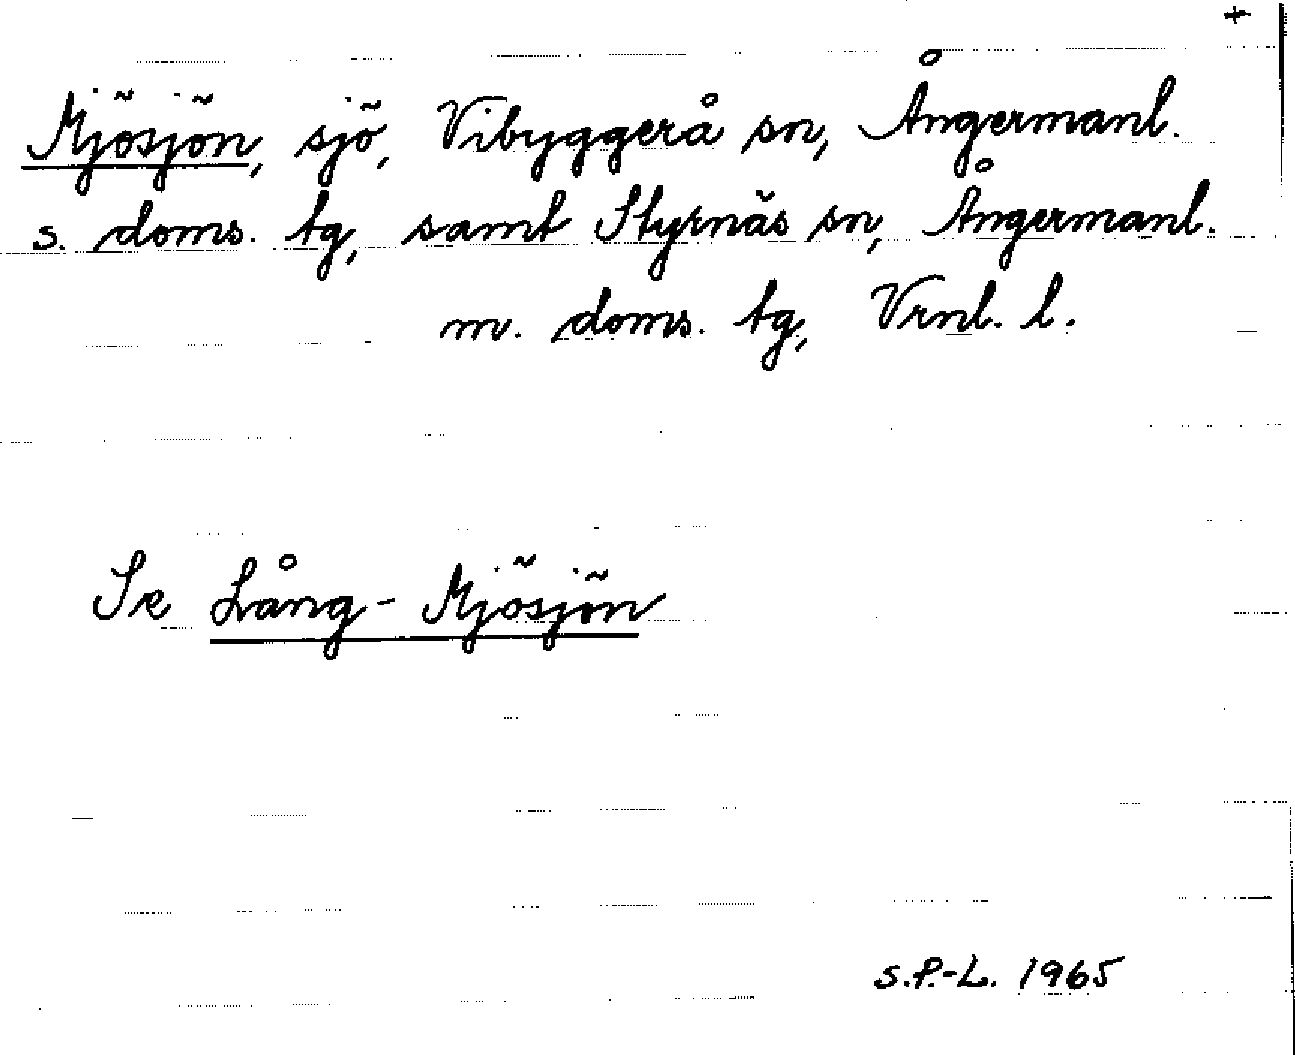 +
Mjösjön, sjö, Vibyggerå sn, Ångermanl.
s. doms. tg, samt Styrnäs sn, Ångermanl.
m. doms. tg, Vrnl. l.
Se Lång-Mjösjön
S.P.-L. 1965